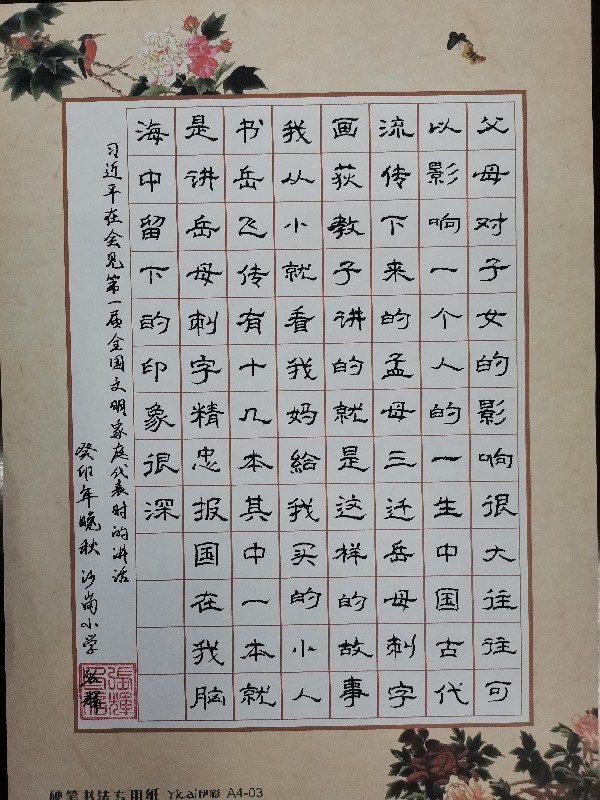 父母对子女的影响很大往往可
以影响一个人的一生中国古代
流传下来的孟母三迁岳母刺字
画荻教子讲的就是这样的故事
我从小就看我妈給我买的小人
书岳飞传有十几本其中一本就
是讲岳母刺字精忠报国在我脑
海中留下的印象很深
习近平在会见第一届全国文明家庭代表时的讲话
癸卯年晚秋 沙岗小学
硬笔书法专用纸 Yicai伊彩 A4-03